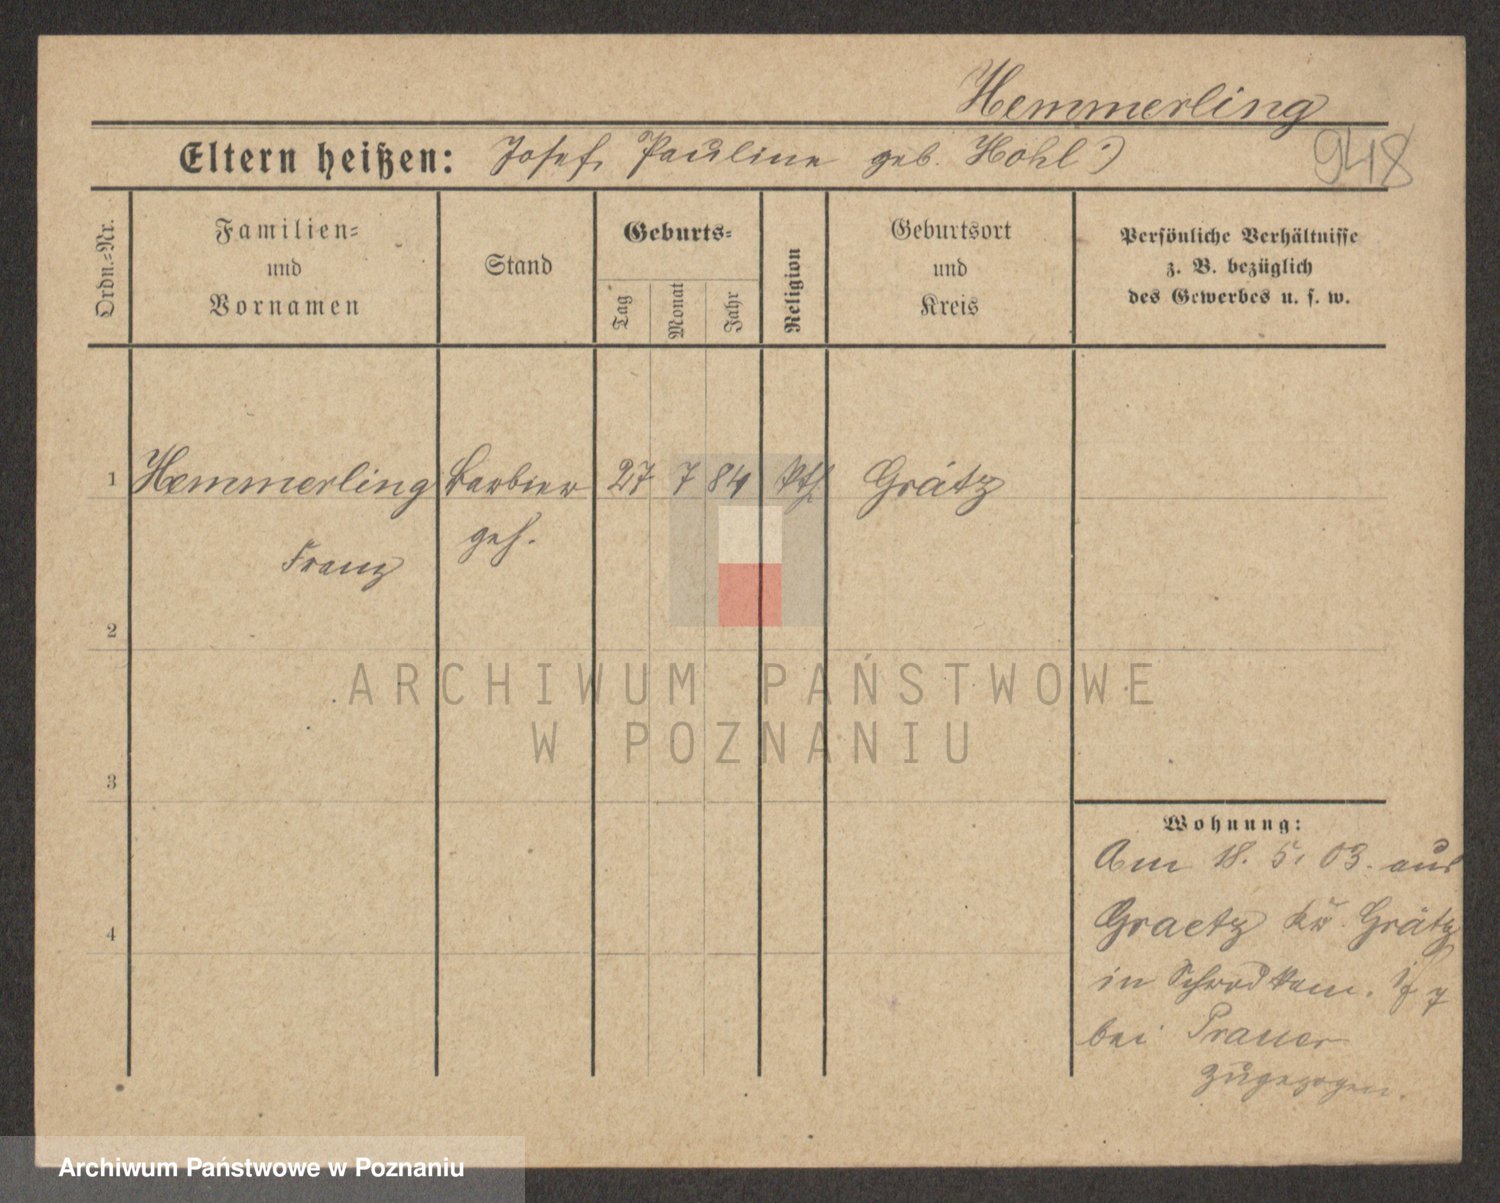 Hemmerling
Eltern heißen: Josef, Pauline geb. Hohl
948
Ordn.-Nr.
Familien- und Vornamen
Stand
Geburts-
Tag
Monat
Jahr
Religion
Geburtsort und Kreis
Persönliche Verhältnisse
z. B. bezüglich
des Gewerbes u. s. w.
1 Hemmerling Barbier 27 7 84 kth Grätz
Franz geh.
2
3
4
Wohnung:
Am 18. 5. 03. aus
Graetz Kr. Grätz
in
bei
zugezogen.
ARCHIWUM PAŃSTWOWE
W POZNANIU
Archiwum Państwowe w Poznaniu